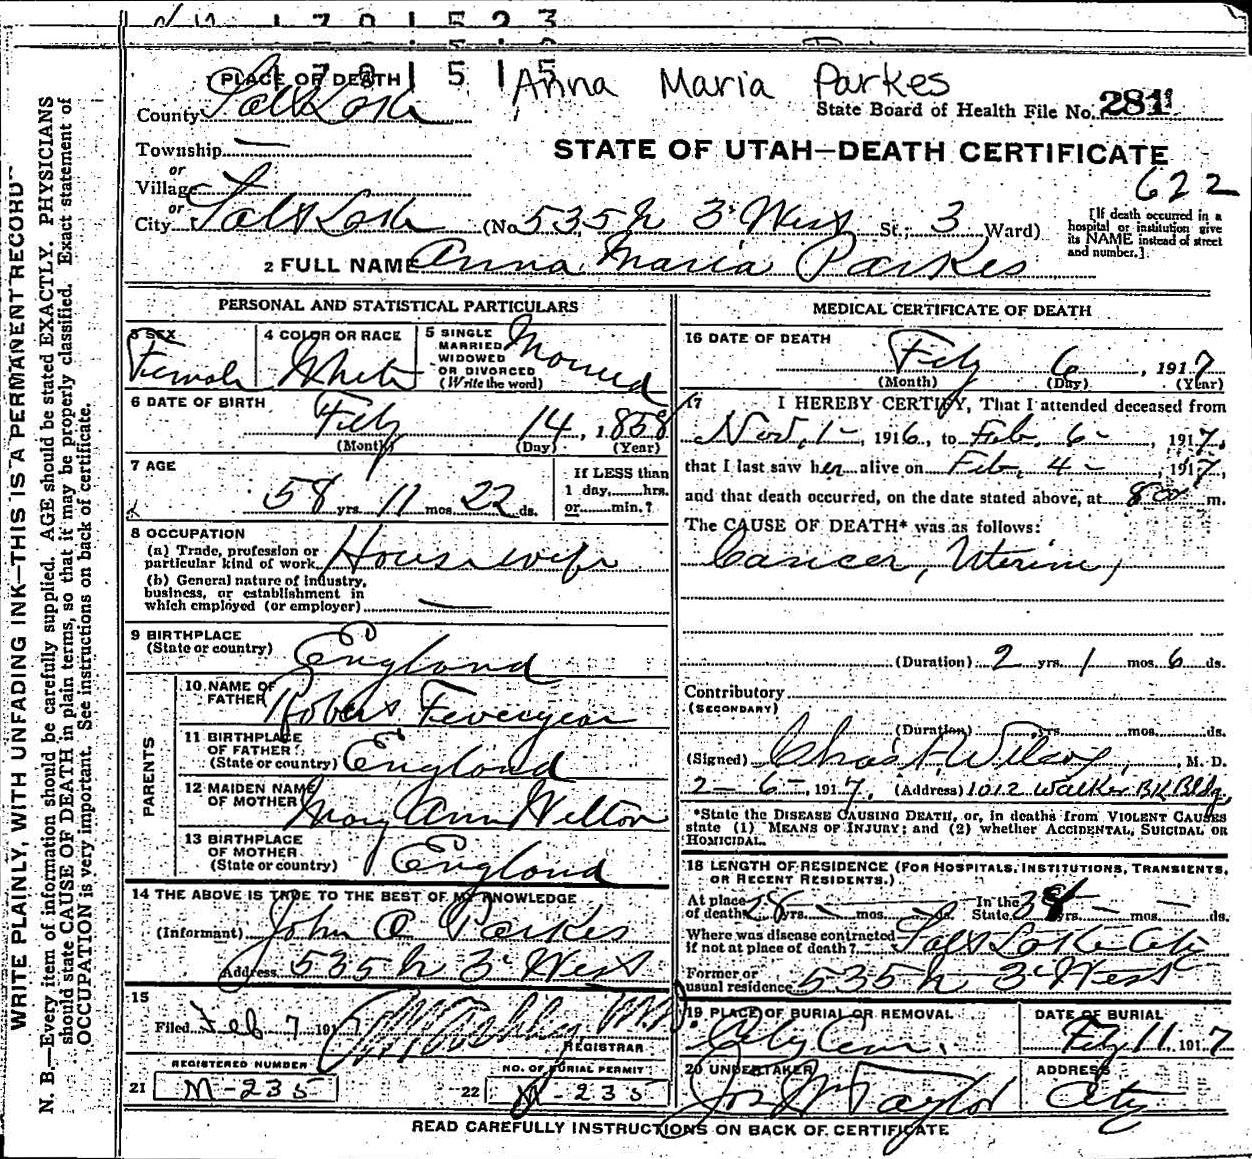 1 7 0 1 5 2 3
1 7 0 1 5 1 5
Anna Maria Parkes
1 PLACE OF DEATH
County Salt Lake
State Board of Health File No. 281
Township —
STATE OF UTAH—DEATH CERTIFICATE
or
Village
622
or
City Salt Lake (No. 535 N 3d West St.; 3 Ward)
[If death occurred in a
hospital or institution give
its NAME instead of street
and number.]
2 FULL NAME Anna Maria Parkes
PERSONAL AND STATISTICAL PARTICULARS
3 SEX
Female
4 COLOR OR RACE
White
5 SINGLE
MARRIED
WIDOWED
OR DIVORCED
(Write the word)
Married
6 DATE OF BIRTH
Feby 14, 1858
(Month) (Day) (Year)
7 AGE
58 yrs. 11 mos. 22 ds.
If LESS than
1 day, hrs.
or min.?
8 OCCUPATION
(a) Trade, profession or
particular kind of work Housewife
(b) General nature of industry,
business, or establishment in
which employed (or employer) —
9 BIRTHPLACE
(State or country) England
PARENTS
10 NAME OF
FATHER Robert Feveryear
11 BIRTHPLACE
OF FATHER
(State or country) England
12 MAIDEN NAME
OF MOTHER Mary Ann Hilton
13 BIRTHPLACE
OF MOTHER
(State or country) England
14 THE ABOVE IS TRUE TO THE BEST OF MY KNOWLEDGE
(Informant) John A Parkes
Address 535 N 3d West
15
Filed Feb 7 1917
REGISTRAR
REGISTERED NUMBER
21 M-235
NO. OF BURIAL PERMIT
22 M-235
MEDICAL CERTIFICATE OF DEATH
16 DATE OF DEATH
Feby 6, 1917
(Month) (Day) (Year)
17 I HEREBY CERTIFY, That I attended deceased from
Nov. 1-, 1916, to Feb. 6-, 1917,
that I last saw her alive on Feb. 4-, 1917,
and that death occurred, on the date stated above, at 8 m.
The CAUSE OF DEATH* was as follows:
Cancer, Uterine,
(Duration) 2 yrs. 1 mos. 6 ds.
Contributory
(SECONDARY)
(Duration) yrs. mos. ds.
(Signed) Chas. F. Wilcox, M. D.
2-6-, 1917. (Address) 1012 Walker BK Bldg.
*State the DISEASE CAUSING DEATH, or, in deaths from VIOLENT CAUSES
state (1) MEANS OF INJURY; and (2) whether ACCIDENTAL, SUICIDAL OR
HOMICIDAL.
18 LENGTH OF RESIDENCE (FOR HOSPITALS, INSTITUTIONS, TRANSIENTS,
OR RECENT RESIDENTS.)
At place
of death 28 yrs. - mos. - ds. In the
State yrs. — mos. — ds.
Where was disease contracted
if not at place of death? Salt Lake City
Former or
usual residence 535 N 3d West
19 PLACE OF BURIAL OR REMOVAL
City Cem.
DATE OF BURIAL
Feby 11, 1917
20 UNDERTAKER
Jos Wm Taylor
ADDRESS
City
READ CAREFULLY INSTRUCTIONS ON BACK OF CERTIFICATE
WRITE PLAINLY, WITH UNFADING INK—THIS IS A PERMANENT RECORD
N. B.—Every item of information should be carefully supplied. AGE should be stated EXACTLY. PHYSICIANS
should state CAUSE OF DEATH in plain terms, so that it may be properly classified. Exact statement of
OCCUPATION is very important. See instructions on back of certificate.